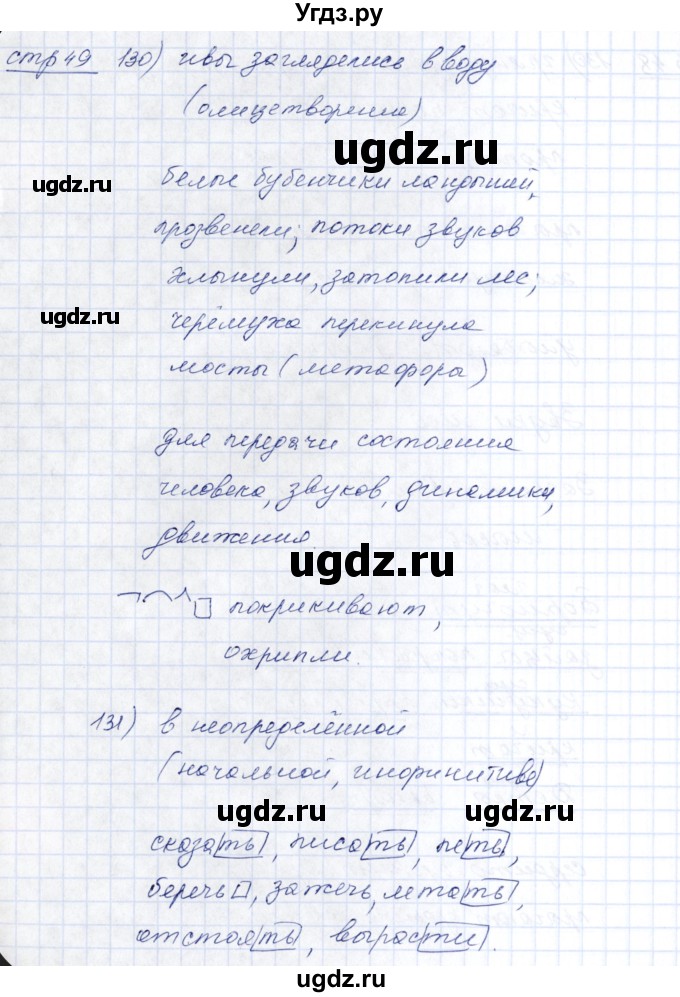 Угдз.ру
стр 49 130) ивы загляделись в воду
(олицетворение)
ugdz.ru
ugdz.ru
белые бубенчики ландышей,
прозвенели; потоки звуков
хлынули, затопили лес;
ugdz.ru
черёмуха перекинула
мосты (метафора)
для передачи состояния
человека, звуков, динамики,
движения
ugdz.ru
покрикивают,
охрипли.
131) в неопределённой
(начальной, инфинитиве)
ugdz.ru ugdz.ru
сказать, писать, петь,
беречь, зажечь, летать,
отстоять, вырасти.
ugdz.ru